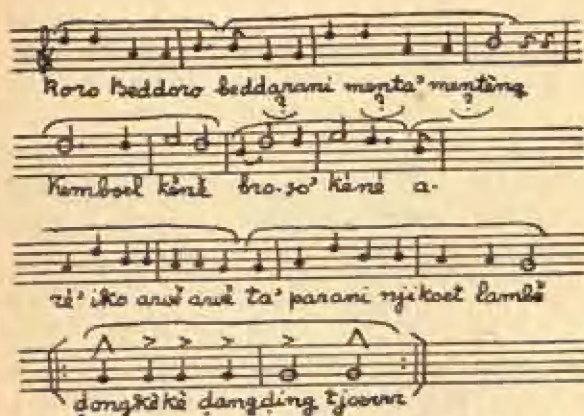 Koro keddoro beddarani menta' mentèng
? ? ?
Kemboel kènt bro-so' kéné a-
ré' iko awè awè ta' parani njikoet lambé
dongkèkè dangding tjoerrr